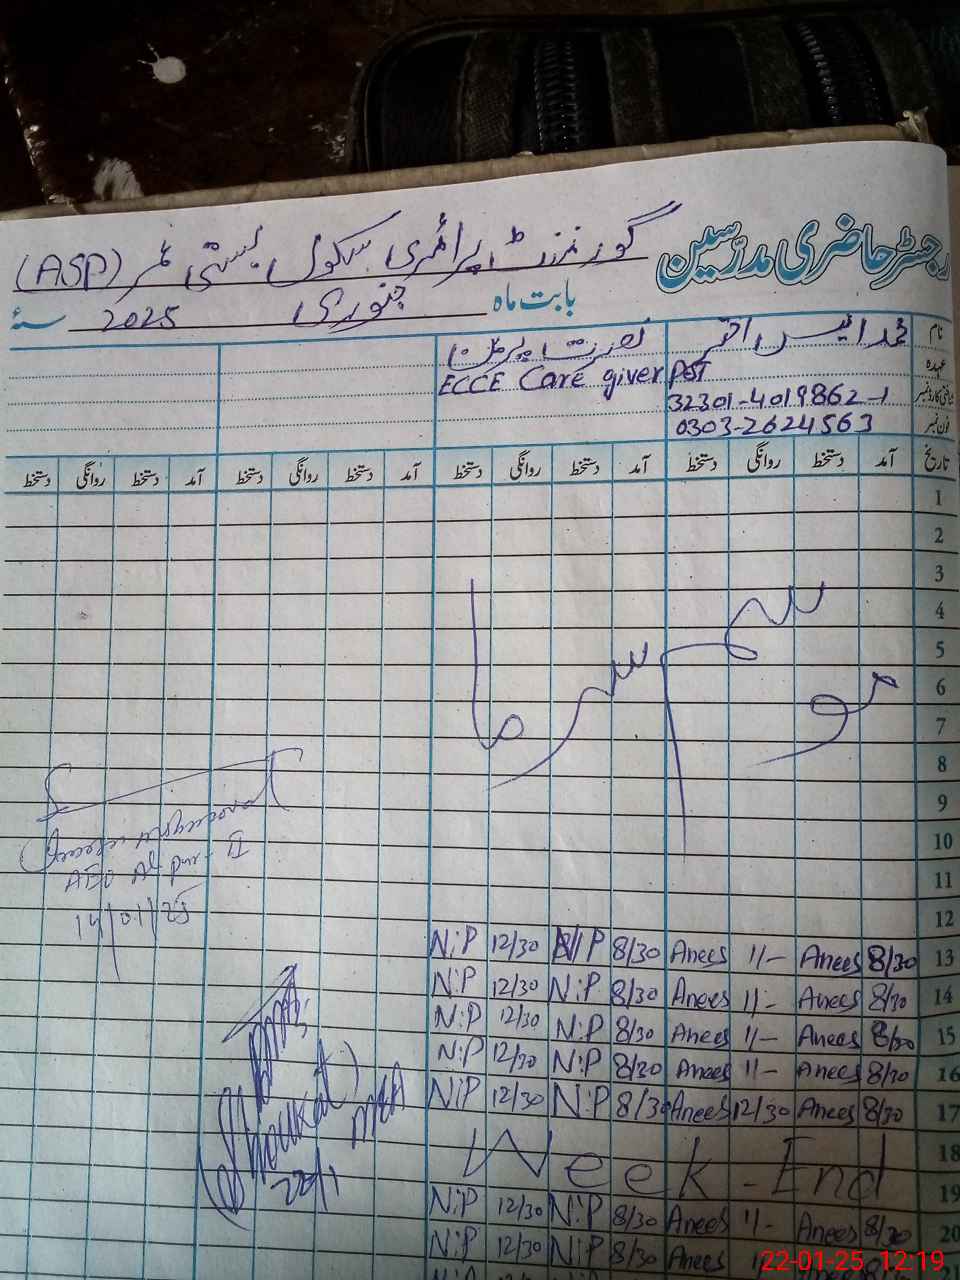 رجسٹر حاضری مدرسین گورنمنٹ پرائمری سکول بستی (ASP)
بابت ماہ جنوری 2025 سنہ
نام محمد انیس اختر نصرت پروین
عہدہ PST ECCE Care giver
شناختی کارڈ نمبر 32301-4019862-1
فون نمبر 0303-2624563
تاریخ آمد دستخط روانگی دستخط آمد دستخط روانگی دستخط آمد دستخط روانگی دستخط آمد دستخط روانگی دستخط
1
2
3
4
5
6
7
8
9
10
11
12
موسم سرما
AEO Al pur-II
14/01/25
N.P 12/30 N.P 8/30 Anees 11/- Anees 8/30 13
N.P 12/30 N.P 8/30 Anees 11/- Anees 8/30 14
N.P 12/30 N.P 8/30 Anees 11/- Anees 8/30 15
N.P 12/30 N.P 8/30 Anees 11/- Anees 8/30 16
N.P 12/30 N.P 8/30 Anees 12/30 Anees 8/30 17
(Shoukat) MEA
22/1
Week-End 18
19
N.P 12/30 N.P 8/30 Anees 11/- Anees 8/30 20
N.P 12/30 N.P 8/30 Anees 21
22-01-25 12:19